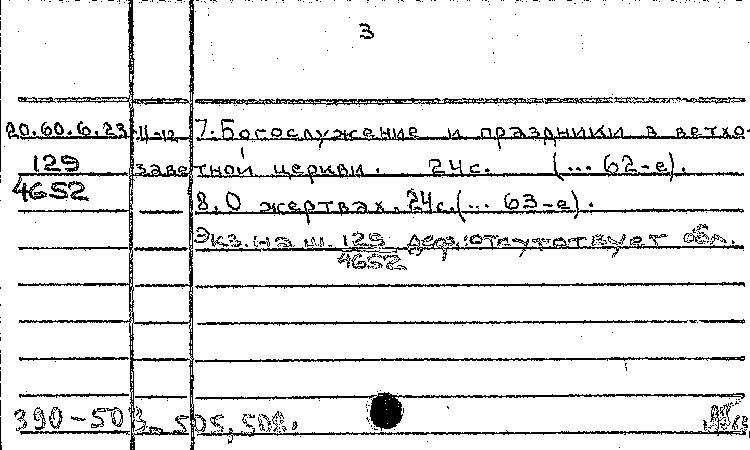 3
20.60.6.23:11-12 7. Богослужение и праздники в ветхо-
129 заветной церкви. 24с. (... 62-е).
4652 8. О жертвах. 24с. (... 63-е).
Экз. на ш. 129 деф.: отсутствует обл.
4652
390-503, 505, 508.